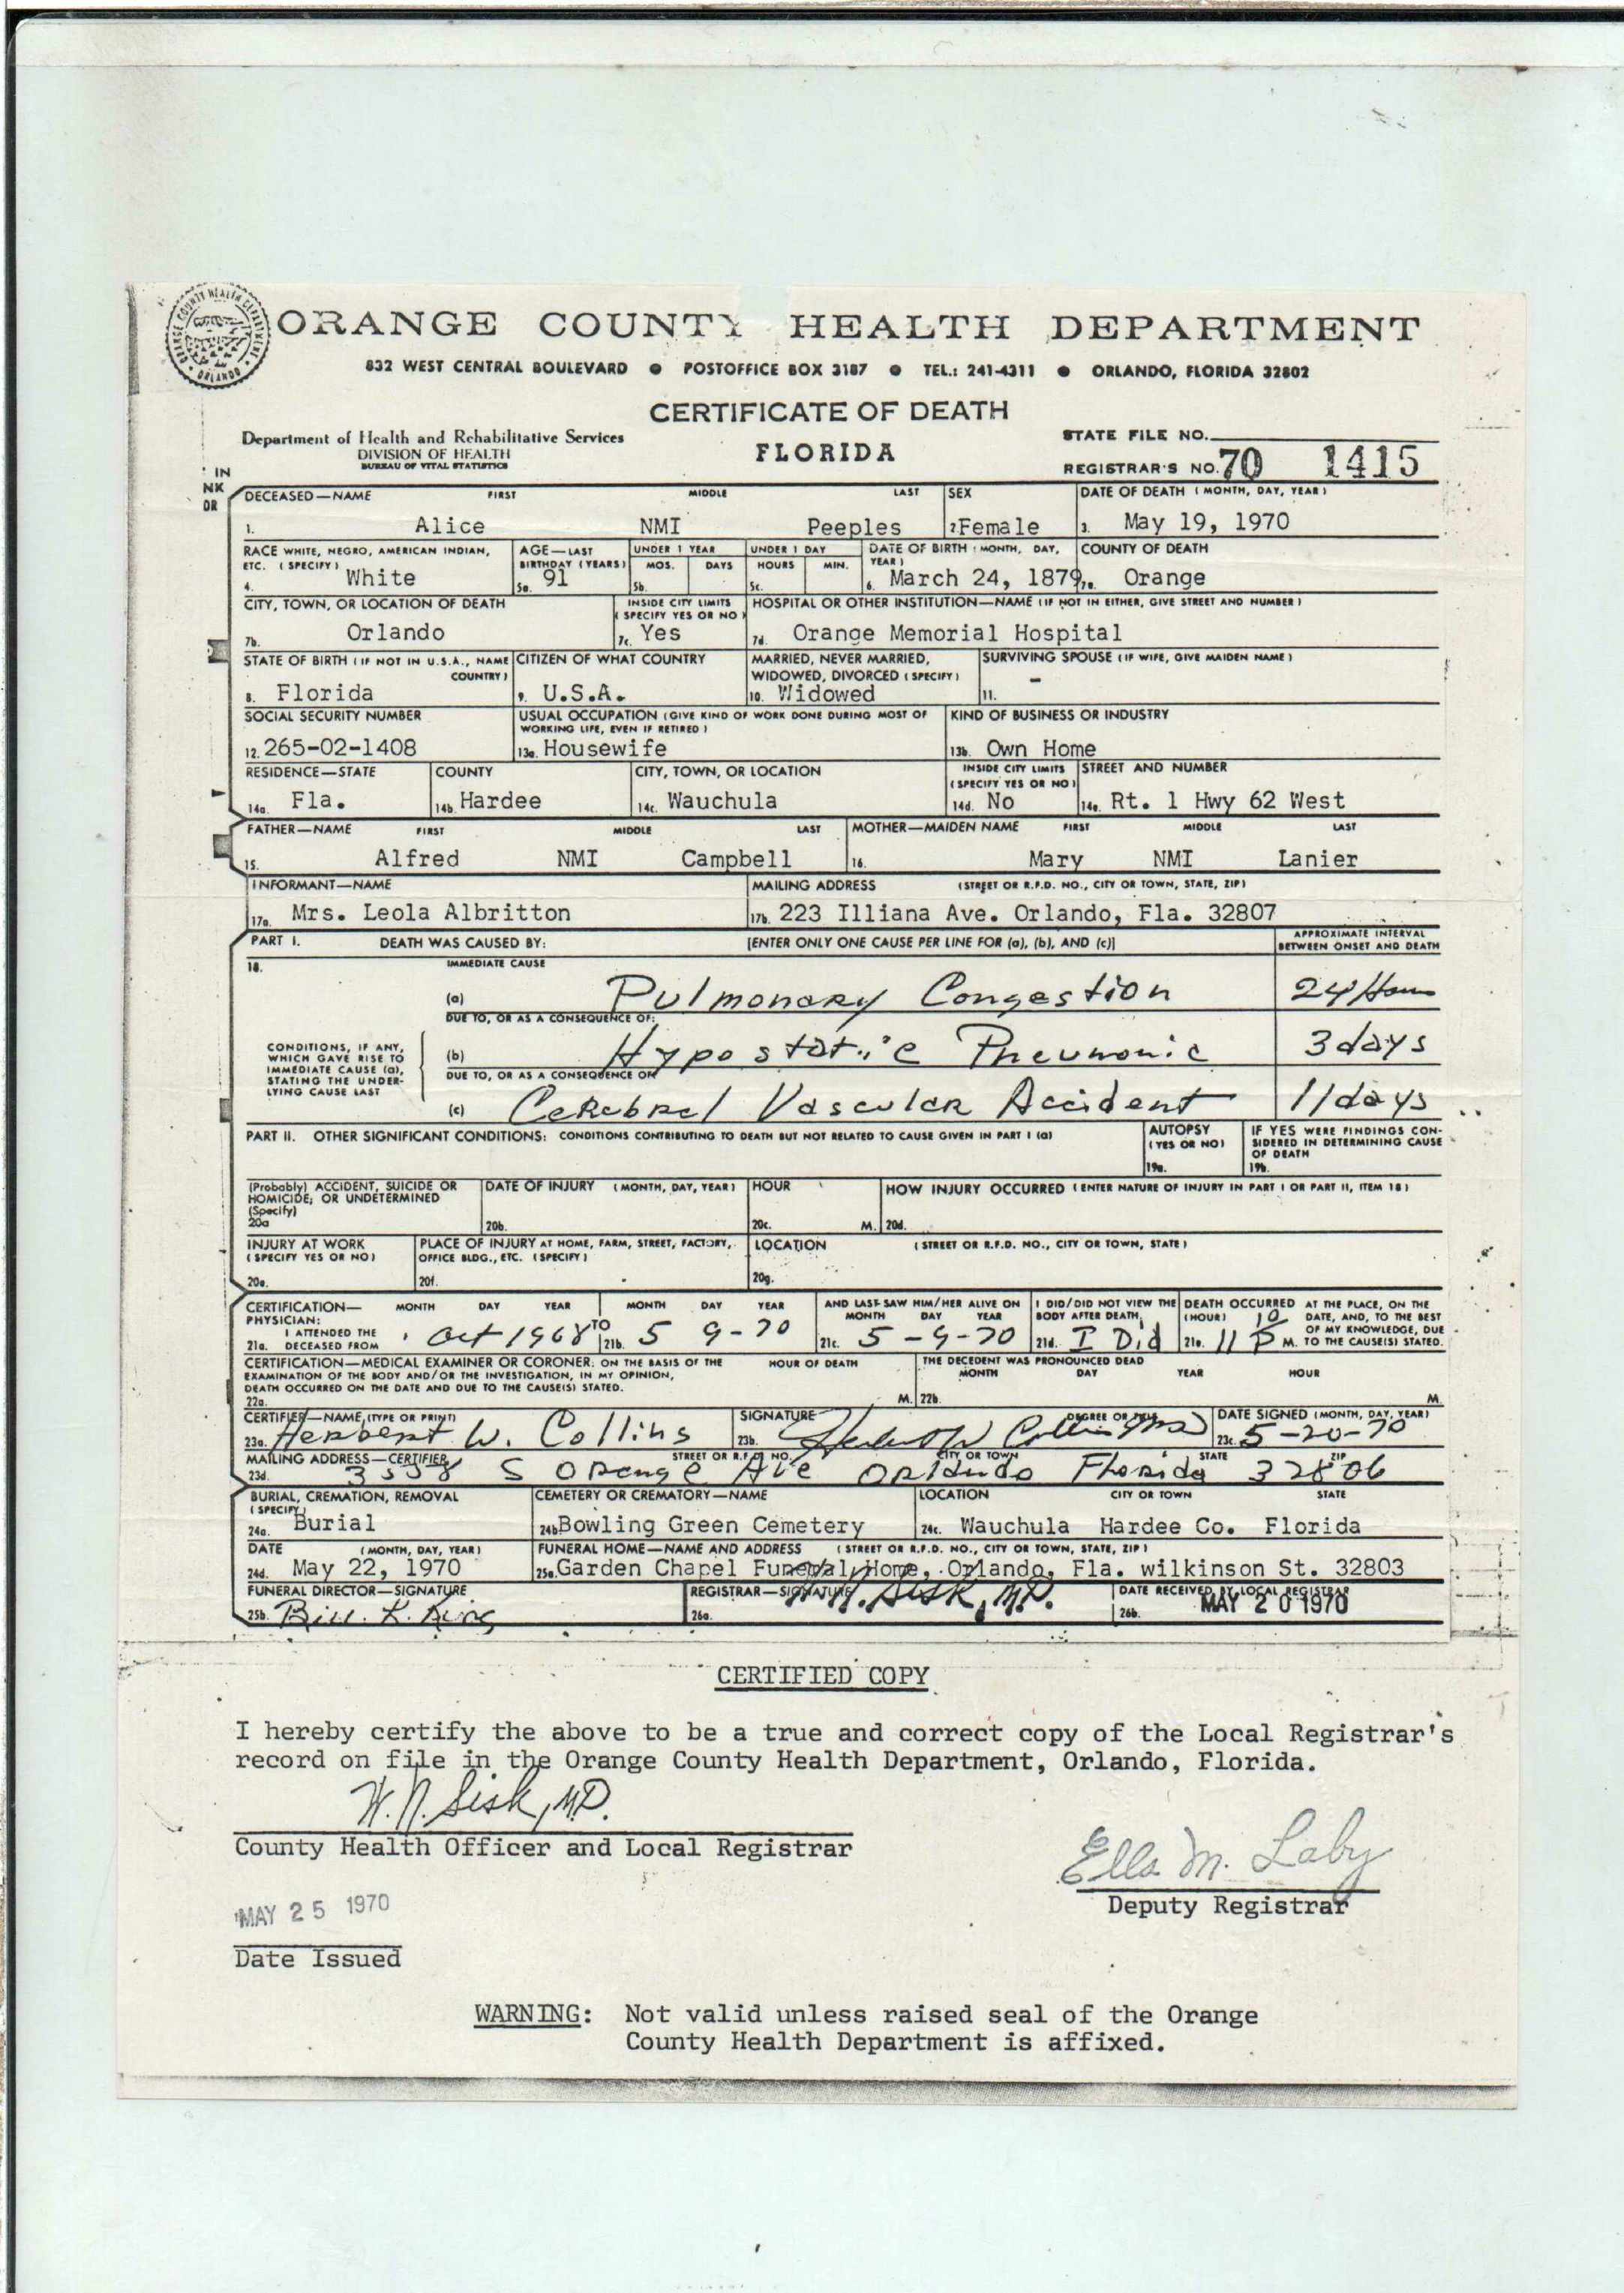 ORANGE COUNTY HEALTH DEPARTMENT
832 WEST CENTRAL BOULEVARD ● POSTOFFICE BOX 3187 ● TEL.: 241-4311 ● ORLANDO, FLORIDA 32802
CERTIFICATE OF DEATH
FLORIDA
Department of Health and Rehabilitative Services
DIVISION OF HEALTH
BUREAU OF VITAL STATISTICS
STATE FILE NO.
REGISTRAR'S NO. 70 1415
IN
NK
OR
DECEASED—NAME FIRST MIDDLE LAST SEX DATE OF DEATH (MONTH, DAY, YEAR)
1. Alice NMI Peeples 2. Female 3. May 19, 1970
RACE WHITE, NEGRO, AMERICAN INDIAN, AGE—LAST UNDER 1 YEAR UNDER 1 DAY DATE OF BIRTH (MONTH, DAY, COUNTY OF DEATH
ETC. (SPECIFY) BIRTHDAY (YEARS) MOS. DAYS HOURS MIN. YEAR)
4. White 5a. 91 5b. 5c. 6. March 24, 1879 7a. Orange
CITY, TOWN, OR LOCATION OF DEATH INSIDE CITY LIMITS HOSPITAL OR OTHER INSTITUTION—NAME (IF NOT IN EITHER, GIVE STREET AND NUMBER)
(SPECIFY YES OR NO)
7b. Orlando 7c. Yes 7d. Orange Memorial Hospital
STATE OF BIRTH (IF NOT IN U.S.A., NAME CITIZEN OF WHAT COUNTRY MARRIED, NEVER MARRIED, SURVIVING SPOUSE (IF WIFE, GIVE MAIDEN NAME)
COUNTRY) WIDOWED, DIVORCED (SPECIFY)
8. Florida 9. U.S.A. 10. Widowed 11. -
SOCIAL SECURITY NUMBER USUAL OCCUPATION (GIVE KIND OF WORK DONE DURING MOST OF KIND OF BUSINESS OR INDUSTRY
WORKING LIFE, EVEN IF RETIRED)
12. 265-02-1408 13a. Housewife 13b. Own Home
RESIDENCE—STATE COUNTY CITY, TOWN, OR LOCATION INSIDE CITY LIMITS STREET AND NUMBER
(SPECIFY YES OR NO)
14a. Fla. 14b. Hardee 14c. Wauchula 14d. No 14e. Rt. 1 Hwy 62 West
FATHER—NAME FIRST MIDDLE LAST MOTHER—MAIDEN NAME FIRST MIDDLE LAST
15. Alfred NMI Campbell 16. Mary NMI Lanier
INFORMANT—NAME MAILING ADDRESS (STREET OR R.F.D. NO., CITY OR TOWN, STATE, ZIP)
17a. Mrs. Leola Albritton 17b. 223 Illiana Ave. Orlando, Fla. 32807
PART I. DEATH WAS CAUSED BY: [ENTER ONLY ONE CAUSE PER LINE FOR (a), (b), AND (c)] APPROXIMATE INTERVAL
BETWEEN ONSET AND DEATH
18. IMMEDIATE CAUSE
(a) Pulmonary Congestion 24 Hours
DUE TO, OR AS A CONSEQUENCE OF:
CONDITIONS, IF ANY,
WHICH GAVE RISE TO
IMMEDIATE CAUSE (a),
STATING THE UNDER-
LYING CAUSE LAST
(b) Hypostatic Pneumonia 3 days
DUE TO, OR AS A CONSEQUENCE OF
(c) Cerebral Vascular Accident 11 days
PART II. OTHER SIGNIFICANT CONDITIONS: CONDITIONS CONTRIBUTING TO DEATH BUT NOT RELATED TO CAUSE GIVEN IN PART I (a) AUTOPSY IF YES WERE FINDINGS CON-
(YES OR NO) SIDERED IN DETERMINING CAUSE
OF DEATH
19a. 19b.
(Probably) ACCIDENT, SUICIDE OR DATE OF INJURY (MONTH, DAY, YEAR) HOUR HOW INJURY OCCURRED (ENTER NATURE OF INJURY IN PART I OR PART II, ITEM 18)
HOMICIDE; OR UNDETERMINED
(Specify)
20a 20b. 20c. M. 20d.
INJURY AT WORK PLACE OF INJURY AT HOME, FARM, STREET, FACTORY, LOCATION (STREET OR R.F.D. NO., CITY OR TOWN, STATE)
(SPECIFY YES OR NO) OFFICE BLDG., ETC. (SPECIFY)
20e. 20f. 20g.
CERTIFICATION— MONTH DAY YEAR MONTH DAY YEAR AND LAST SAW HIM/HER ALIVE ON I DID/DID NOT VIEW THE DEATH OCCURRED AT THE PLACE, ON THE
PHYSICIAN: TO MONTH DAY YEAR BODY AFTER DEATH, (HOUR) 10 DATE, AND, TO THE BEST
I ATTENDED THE OF MY KNOWLEDGE, DUE
21a. DECEASED FROM Oct 1968 21b. 5 9-70 21c. 5-9-70 21d. I Did 21e. 11 P M. TO THE CAUSE(S) STATED.
CERTIFICATION—MEDICAL EXAMINER OR CORONER: ON THE BASIS OF THE HOUR OF DEATH THE DECEDENT WAS PRONOUNCED DEAD
EXAMINATION OF THE BODY AND/OR THE INVESTIGATION, IN MY OPINION, MONTH DAY YEAR HOUR
DEATH OCCURRED ON THE DATE AND DUE TO THE CAUSE(S) STATED.
22a. M. 22b. M
CERTIFIER—NAME (TYPE OR PRINT) SIGNATURE DEGREE OR TITLE DATE SIGNED (MONTH, DAY, YEAR)
23a. Herbert W. Collins 23b. Herbert W Collins MD 23c. 5-20-70
MAILING ADDRESS—CERTIFIER STREET OR R.F.D. NO. CITY OR TOWN STATE ZIP
23d. S Orange Ave Orlando Florida 32806
BURIAL, CREMATION, REMOVAL CEMETERY OR CREMATORY—NAME LOCATION CITY OR TOWN STATE
(SPECIFY)
24a. Burial 24b. Bowling Green Cemetery 24c. Wauchula Hardee Co. Florida
DATE (MONTH, DAY, YEAR) FUNERAL HOME—NAME AND ADDRESS (STREET OR R.F.D. NO., CITY OR TOWN, STATE, ZIP)
24d. May 22, 1970 25a. Garden Chapel Funeral Home, Orlando, Fla. wilkinson St. 32803
FUNERAL DIRECTOR—SIGNATURE REGISTRAR—SIGNATURE DATE RECEIVED BY LOCAL REGISTRAR
25b. Bill K. King 26a. W.N. Sisk, M.D. 26b. MAY 20 1970
CERTIFIED COPY
I hereby certify the above to be a true and correct copy of the Local Registrar's
record on file in the Orange County Health Department, Orlando, Florida.
W.N. Sisk, M.D.
County Health Officer and Local Registrar
Ella M. Laby
Deputy Registrar
MAY 25 1970
Date Issued
WARNING: Not valid unless raised seal of the Orange
County Health Department is affixed.